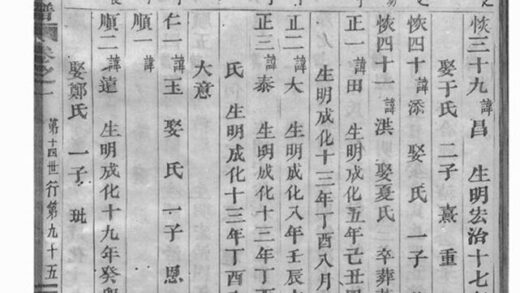 恢三十九諱昌　生明宏治十七
娶于氏　二子　熹　重
恢四十　諱添　娶　氏　一子
恢四十一諱洪　娶夏氏　卒葬
正一　諱田　生明成化五年己丑
生明成化十三年丁酉八月
正二　諱大　生明成化八年壬辰
正三　諱泰　生明成化十三年丁
氏　生明成化十三年丁酉
大意
仁一　諱玉　娶　氏　一子　恩
順一　諱
順二　諱遠　生明成化十九年癸卯
娶鄭氏　一子　玭
譜　卷之一　第十四世行第九十五